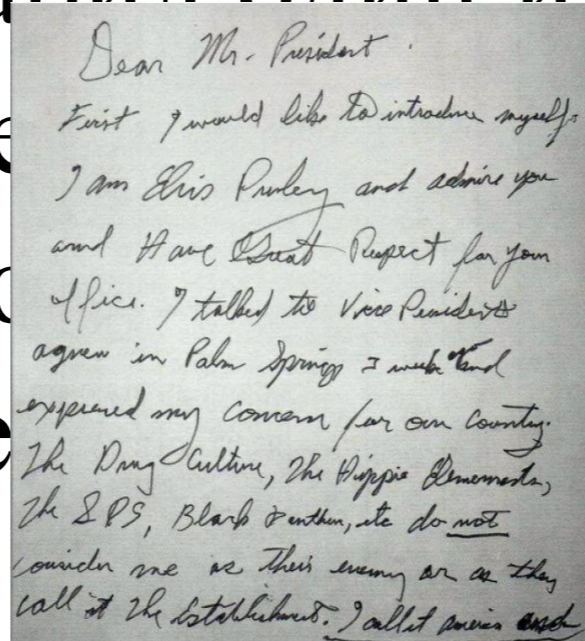 Dear Mr. President.
First I would like to introduce myself.
I am Elvis Presley and admire you
and Have Great Respect for your
office. I talked to Vice President
agnew in Palm Springs 3 weeks and
expressed my concern for our country.
The Drug Culture, The Hippie Elements,
The SDS, Black Panthers, etc do not
consider me as their enemy or as they
call it The Establishment. I call it america and